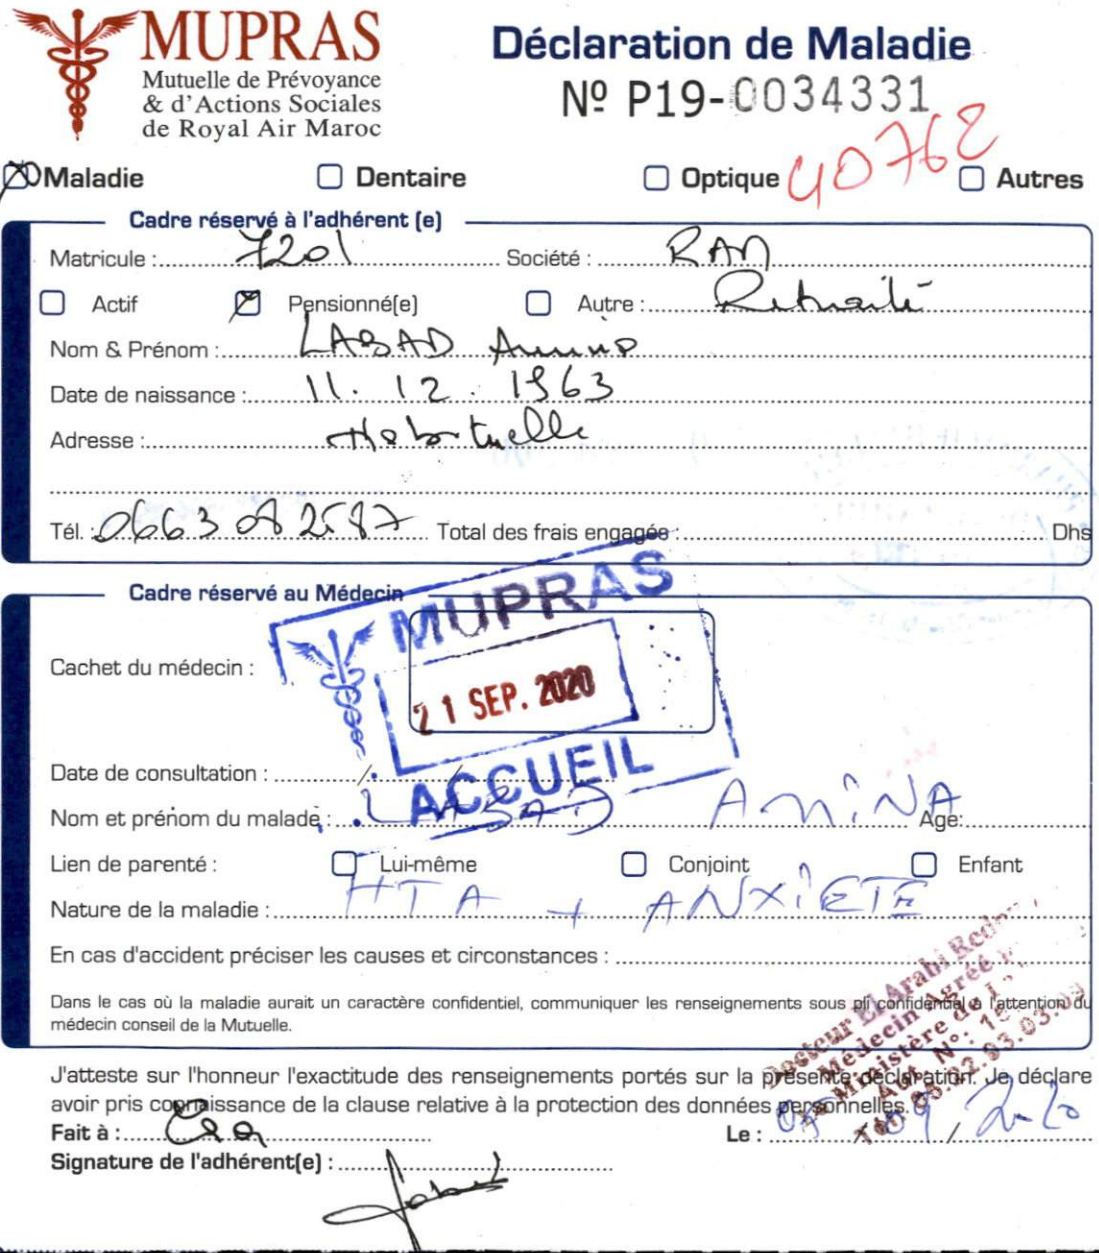 MUPRAS
Mutuelle de Prévoyance
& d'Actions Sociales
de Royal Air Maroc
Déclaration de Maladie
Nº P19-0034331
40762
Maladie Dentaire Optique Autres
Cadre réservé à l'adhérent (e)
Matricule : 7201 Société : RAM
Actif Pensionné(e) Autre : Retraité
Nom & Prénom : LABAD Amina
Date de naissance : 11. 12. 1963
Adresse : Habituelle
Tél. : 0663 08 2587 Total des frais engagés : Dhs
Cadre réservé au Médecin
MUPRAS
Cachet du médecin :
21 SEP. 2020
ACCUEIL
Date de consultation :
Nom et prénom du malade : LABAD AMiNA Age:
Lien de parenté : Lui-même Conjoint Enfant
Nature de la maladie : HTA + ANXiETE
En cas d'accident préciser les causes et circonstances :
Dans le cas où la maladie aurait un caractère confidentiel, communiquer les renseignements sous pli confidentiel à l'attention du
médecin conseil de la Mutuelle.
Docteur El Arabi
Médecin Agréé
Ministère de
J'atteste sur l'honneur l'exactitude des renseignements portés sur la présente déclaration. Je déclare
avoir pris connaissance de la clause relative à la protection des données personnelles.
Fait à : Casa Le : 09
Signature de l'adhérent(e) :